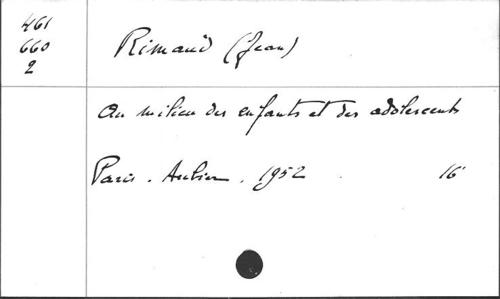 461
660
2
Rimaud (Jean)
Au milieu des enfants et des adolescents
Paris . Aubier . 1952 . 16°